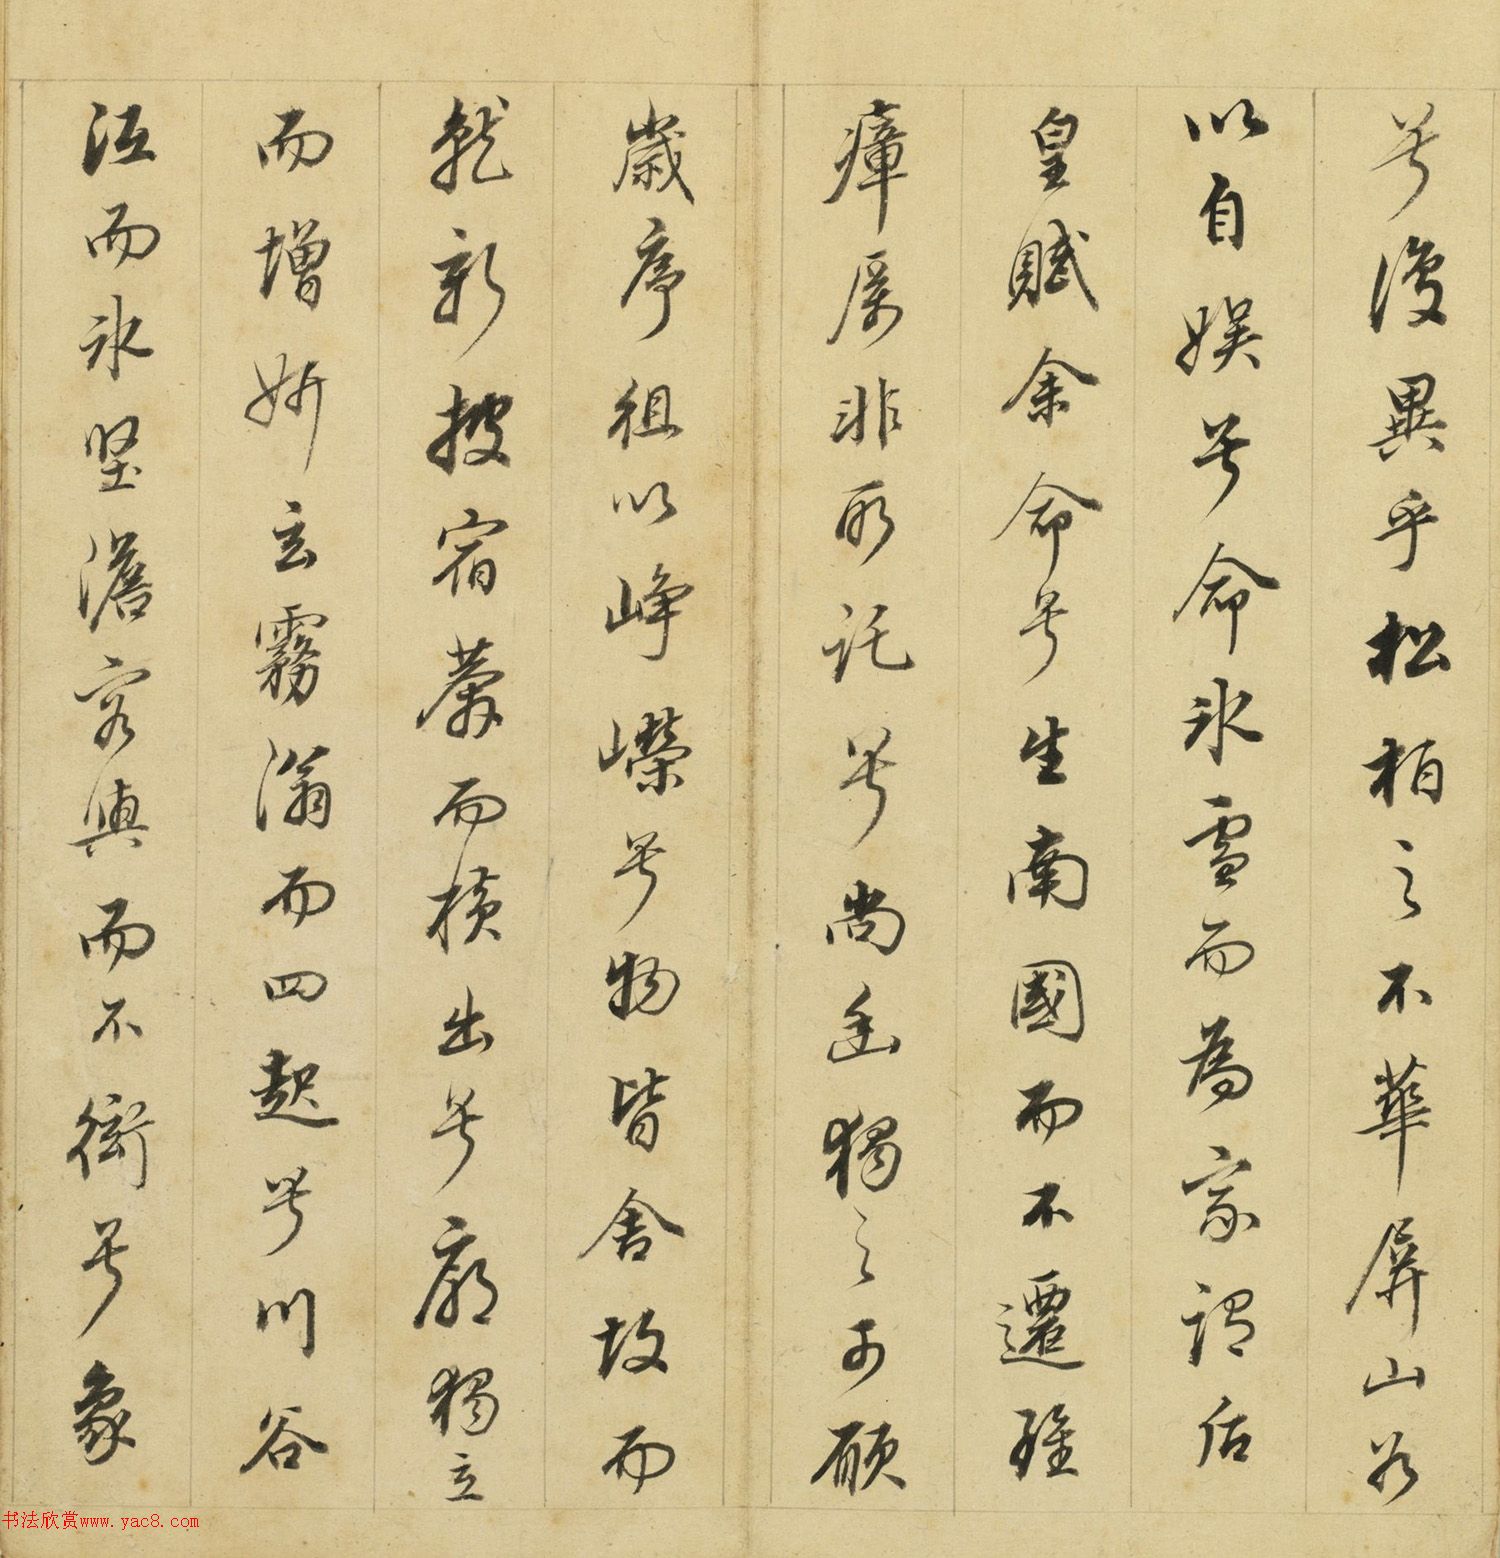 兮復異乎松柏之不華屏山谷
以自娛兮命冰雪而為家謂后
皇賦余命兮生南國而不遷雖
瘴厲非所託兮尚幽獨之可願
歲序徂以崢嶸兮物皆舍故而
就新披宿莽而橫出兮廓獨立
而增妍玄霧滃而四起兮川谷
沍而冰堅澹容與而不衒兮象
书法欣赏www.yac8.com